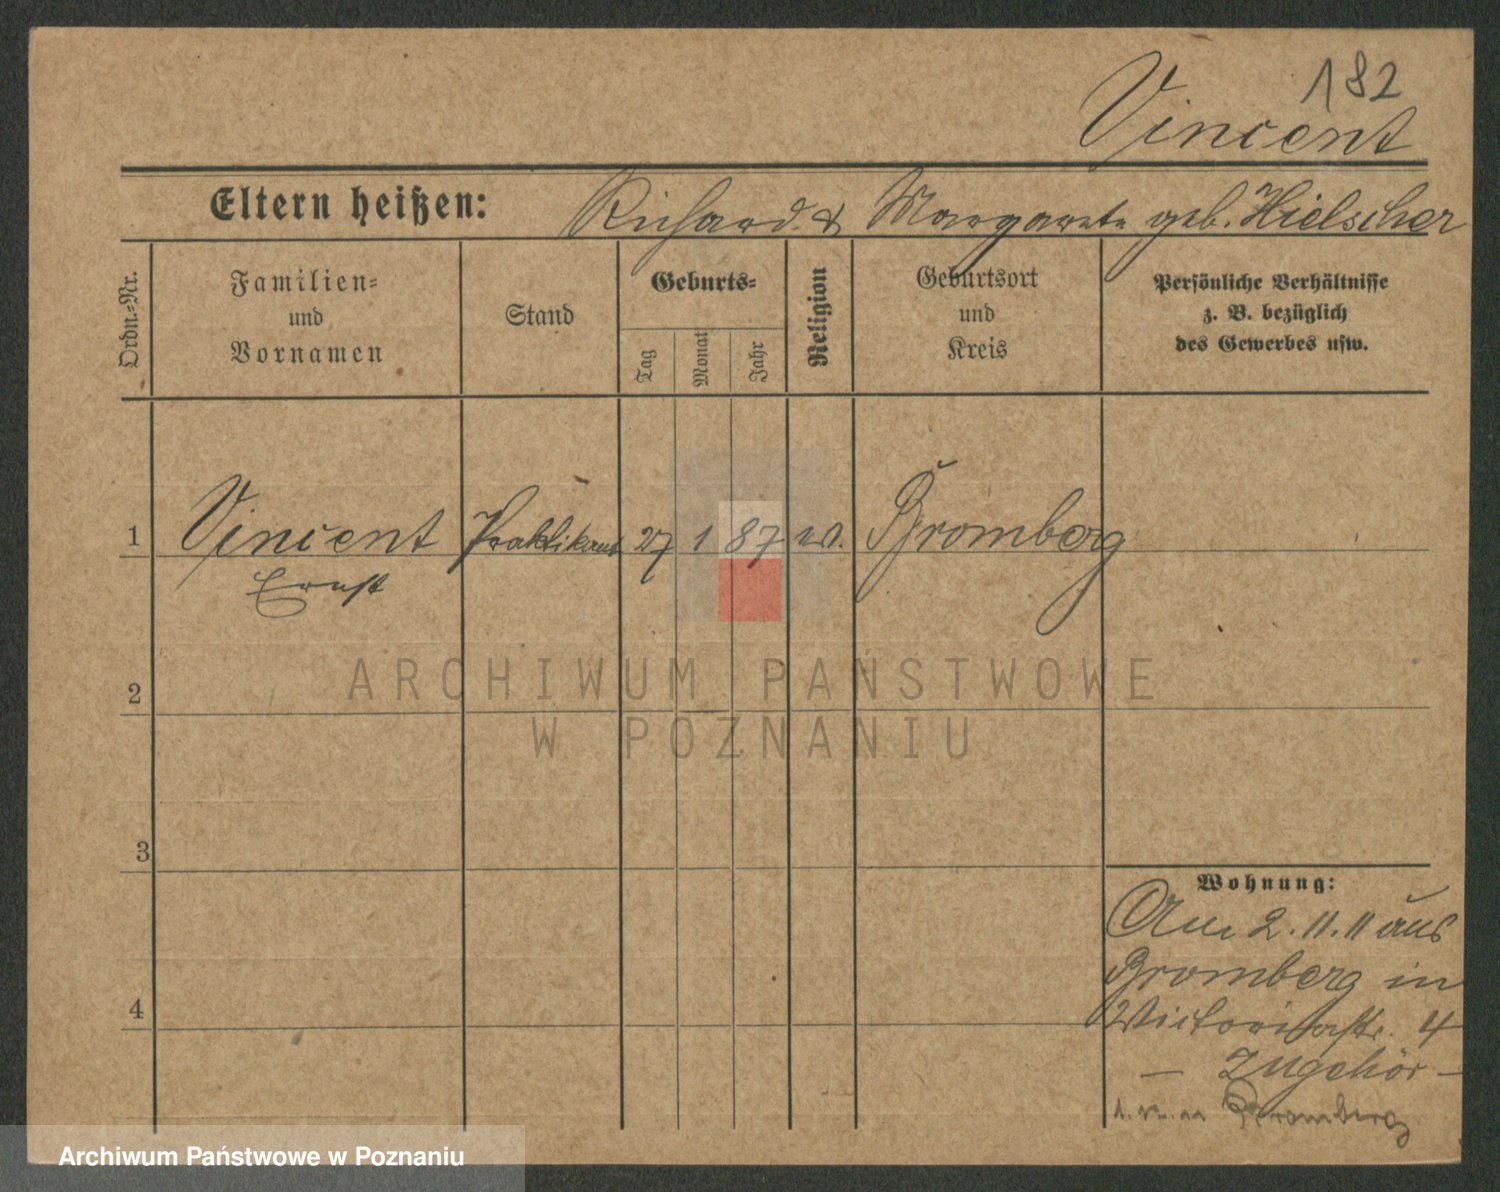 182
Vincent
Eltern heißen: Richard & Margarete geb. Hielscher
Ordn.-Nr.
Familien-
und
Vornamen
Stand
Geburts-
Tag
Monat
Jahr
Religion
Geburtsort
und
Kreis
Persönliche Verhältnisse
z. B. bezüglich
des Gewerbes usw.
1 Vincent Praktikant 27 1 87 ev. Bromberg
Ernst
2
3
4
Wohnung:
Am 2.11.11 aus
Bromberg in
Victoriastr. 4
— Zugehör —
Bromberg
ARCHIWUM PAŃSTWOWE
W POZNANIU
Archiwum Państwowe w Poznaniu